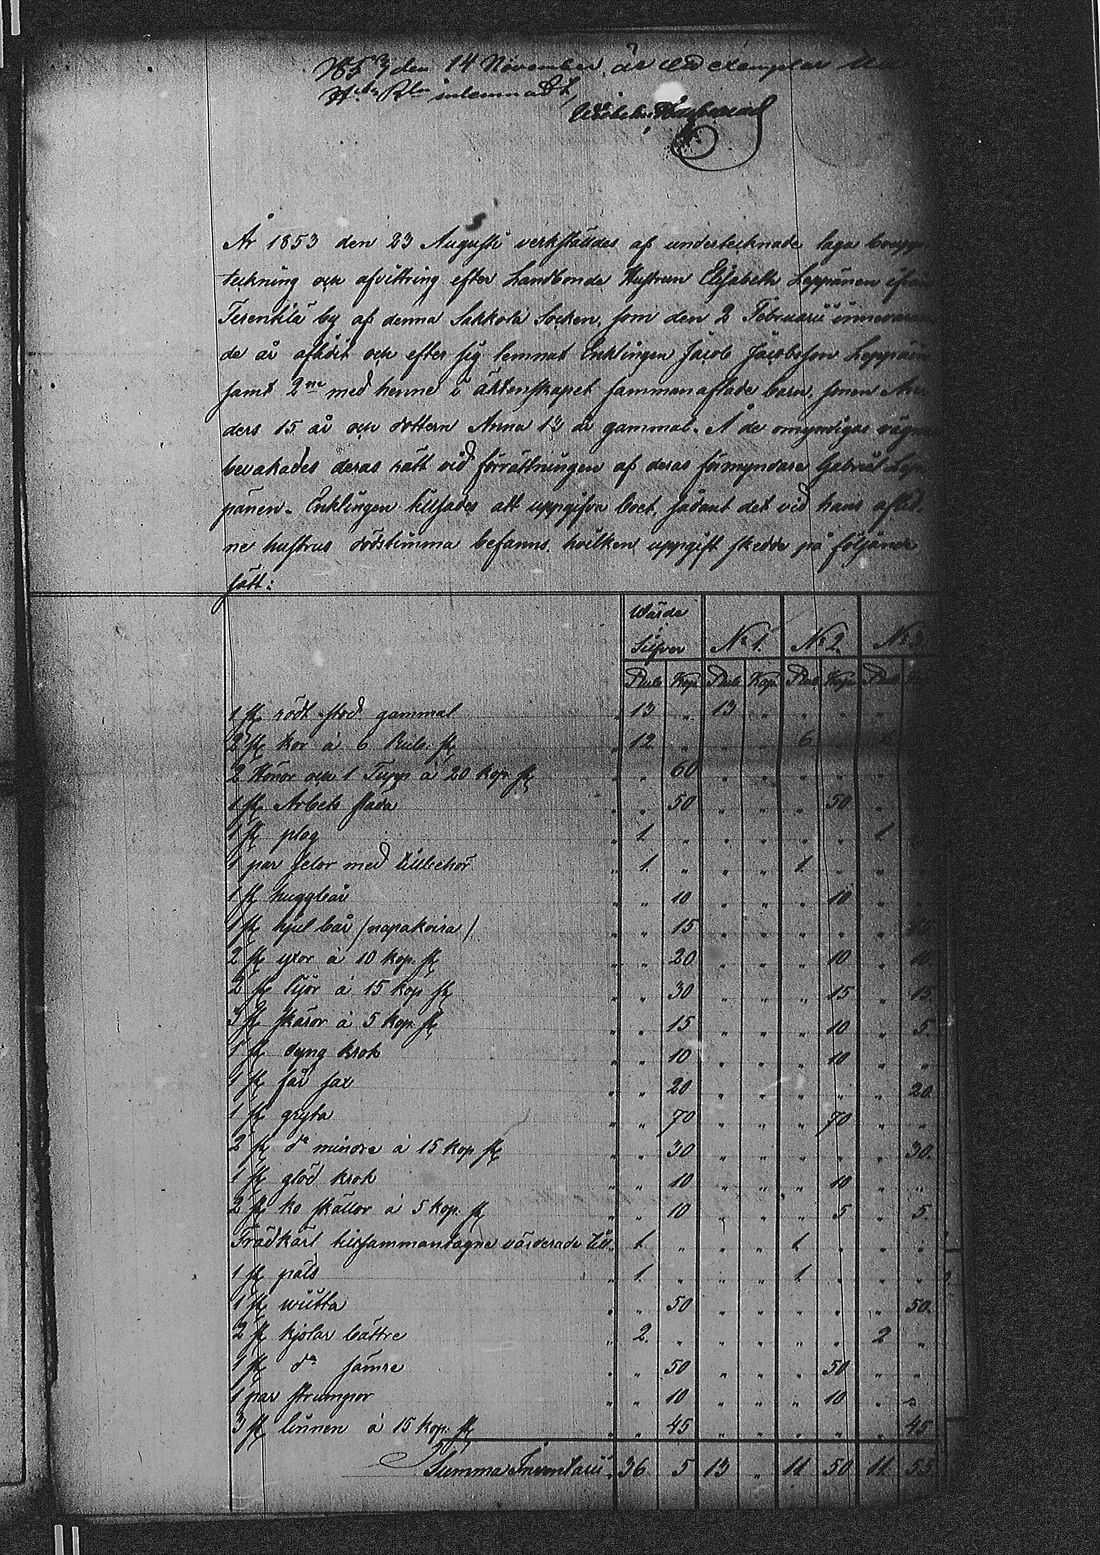 1853 den 14 November, är ett exemplar
inlemnadt,
År 1853 den 23 Augusti verkställdes af undertecknade laga bouppteckning
teckning och afvittring efter Landbonde Hustrun Elisabeth Leppänen ifrån
Terenttilä by af denna Sakkola Socken, som den 2 Februarii innevaran
de år aflidit och efter sig lemnat Enklingen Jacob Jacobsson Leppänen
samt 2ne med henne i äktenskapet sammanaflade barn, sonen An
ders 15 år och dottern Anna 13 år gammal. Å de omyndigas vägnar
bevakades deras rätt vid förrättningen af deras förmyndare Gabriel Lep
pänen. Enklingen tillsades att uppgifva boet, sådant det vid hans aflid
ne hustrus dödstimma befanns, hvilken uppgift skedde på följande
sätt:
Wärde
Silfver No 1. No 2. No 3.
Rub. Kop. Rub. Kop. Rub. Kop. Rub.
1 st. rödt stod gammal " 13 " 13 " " " " "
2 st. kor à 6 Rub. st. " 12 " " " 6 " 6
2 Hönor och 1 Tupp à 20 kop. st. " " 60 " " " " "
1 st. Arbets släda " " 50 " " " 50 " "
1 st. plog " 1. " " " " " 1 "
1 par selor med tillbehör " 1. " " " 1. " " "
1 st. huggbår " " 10 " " " 10 " "
1 st. hjul bår (napakoira) " " 15 " " " " " 15
2 st. yxor à 10 kop. st. " " 20 " " " 10 " 10
2 st. lijor à 15 kop. st. " " 30 " " " 15 " 15
3 st. skäror à 5 kop. st. " " 15 " " " 10 " 5.
1 st. dyng krok " " 10 " " " 10 " "
1 st. får sax " " 20 " " " " " 20.
1 st. gryta " " 70 " " " 70 " "
2 st. do mindre à 15 kop. st. " " 30 " " " " " 30.
1 st. glöd krok " " 10 " " " 10 " "
2 st. ko skällor à 5 kop. st. " " 10 " " " 5 " 5.
Trädkärl tilsammantagne värderade till " 1. " " " 1. " " "
1 st. päls " 1. " " " 1. " " "
1 st. wiitta " " 50 " " " " " 50.
2 st. kjolar bättre " 2. " " " " " 2 "
1 st. do sämre " " 50 " " " 50 " "
1 par strumpor " " 10 " " " 10 " "
3 st. linnen à 15 kop. st. " " 45 " " " " " 45
Summa Inventarii 36 5 13 " 11 50 11 55.